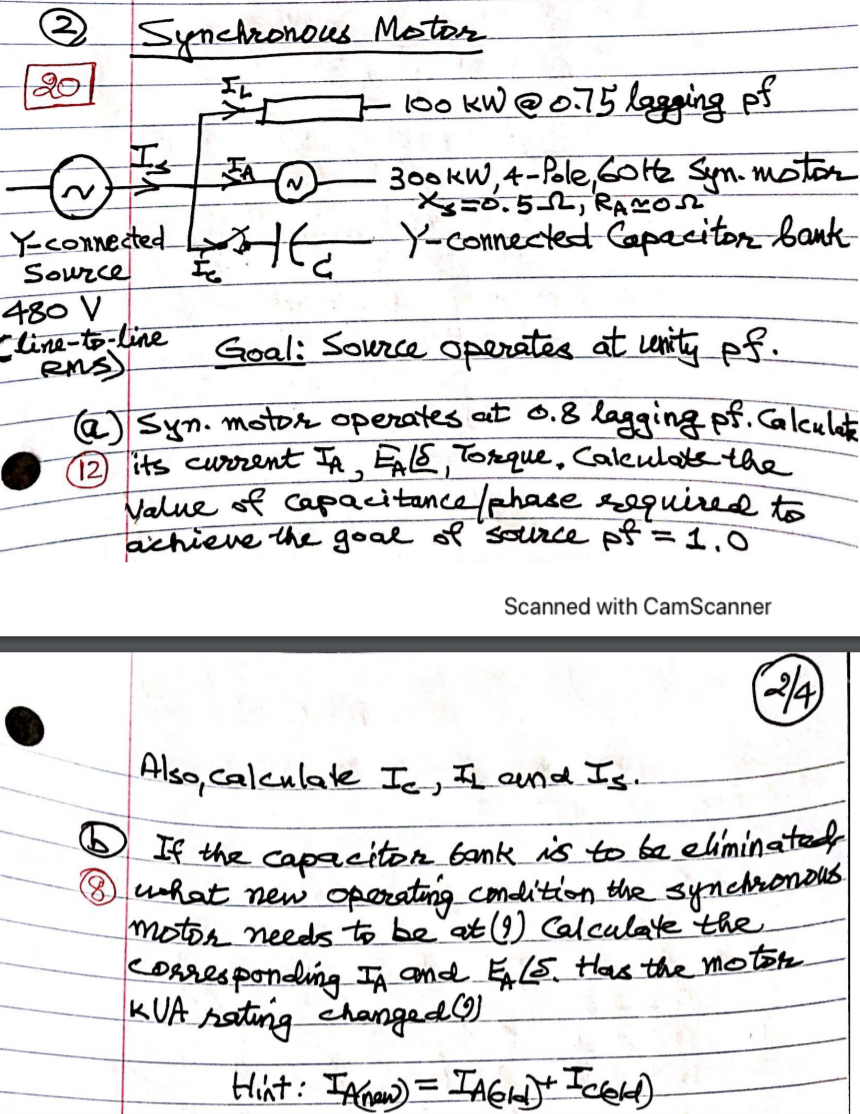 ② Synchronous Motor
20
I_L
100 KW @ 0.75 lagging pf
I_s
I_A
300 KW, 4-Pole, 60Hz Syn. motor
X_s=0.5Ω, R_A≃0Ω
Y-connected Source
I_c
C
Y-connected Capacitor bank
480 V
(line-to-line RMS)
Goal: Source operates at unity pf.
(a) Syn. motor operates at 0.8 lagging pf. Calculate
12 its current I_A, E_A∠δ, Torque. Calculate the
value of capacitance/phase required to
achieve the goal of source pf = 1.0
Scanned with CamScanner
2/4
Also, calculate I_c, I_L and I_s.
(b) If the capacitor bank is to be eliminated,
8 what new operating condition the synchronous
motor needs to be at(?) Calculate the
corresponding I_A and E_A∠δ. Has the motor
KVA rating changed(?)
Hint: I_A(new) = I_A(old) + I_C(old)